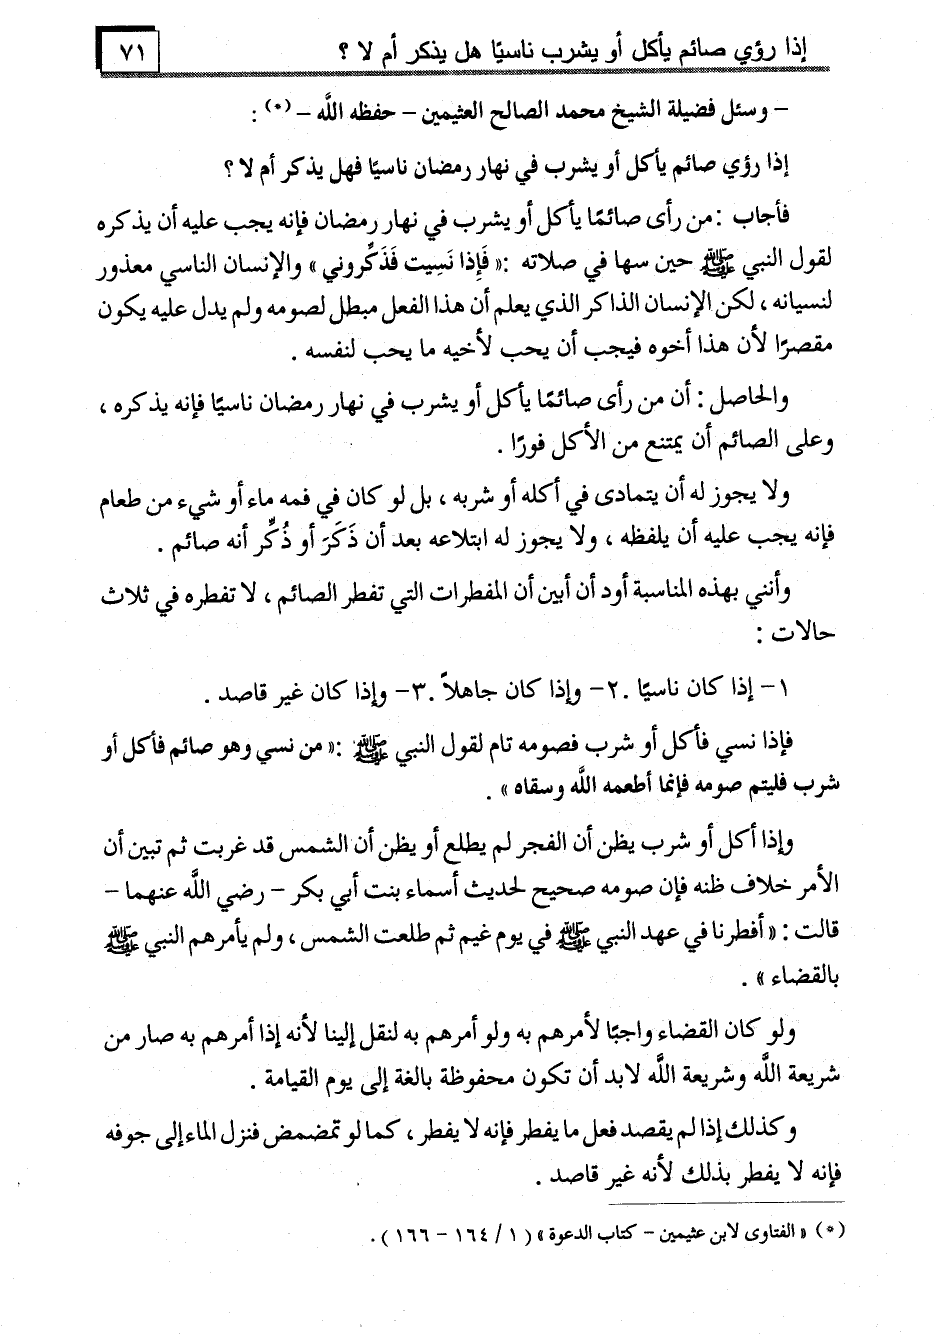 إذا رؤي صائم يأكل أو يشرب ناسيًا هل يذكر أم لا ؟
٧١
- وسئل فضيلة الشيخ محمد الصالح العثيمين - حفظه اللَّه - (*) :
إذا رؤي صائم يأكل أو يشرب في نهار رمضان ناسيًا فهل يذكر أم لا ؟
فأجاب : من رأى صائمًا يأكل أو يشرب في نهار رمضان فإنه يجب عليه أن يذكره
لقول النبي ﷺ حين سها في صلاته : « فَإِذا نَسِيت فَذَكِّروني » والإنسان الناسي معذور
لنسيانه ، لكن الإنسان الذاكر الذي يعلم أن هذا الفعل مبطل لصومه ولم يدل عليه يكون
مقصرًا لأن هذا أخوه فيجب أن يحب لأخيه ما يحب لنفسه .
والحاصل : أن من رأى صائمًا يأكل أو يشرب في نهار رمضان ناسيًا فإنه يذكره ،
وعلى الصائم أن يمتنع من الأكل فورًا .
ولا يجوز له أن يتمادى في أكله أو شربه ، بل لو كان في فمه ماء أو شيء من طعام
فإنه يجب عليه أن يلفظه ، ولا يجوز له ابتلاعه بعد أن ذَكَرَ أو ذُكِّر أنه صائم .
وأنني بهذه المناسبة أود أن أبين أن المفطرات التي تفطر الصائم ، لا تفطره في ثلاث
حالات :
١- إذا كان ناسيًا . ٢- وإذا كان جاهلاً . ٣- وإذا كان غير قاصد .
فإذا نسي فأكل أو شرب فصومه تام لقول النبي ﷺ : « من نسي وهو صائم فأكل أو
شرب فليتم صومه فإنما أطعمه اللَّه وسقاه » .
وإذا أكل أو شرب يظن أن الفجر لم يطلع أو يظن أن الشمس قد غربت ثم تبين أن
الأمر خلاف ظنه فإن صومه صحيح لحديث أسماء بنت أبي بكر - رضي اللَّه عنهما -
قالت : « أفطرنا في عهد النبي ﷺ في يوم غيم ثم طلعت الشمس ، ولم يأمرهم النبي ﷺ
بالقضاء » .
ولو كان القضاء واجبًا لأمرهم به ولو أمرهم به لنقل إلينا لأنه إذا أمرهم به صار من
شريعة اللَّه وشريعة اللَّه لابد أن تكون محفوظة بالغة إلى يوم القيامة .
وكذلك إذا لم يقصد فعل ما يفطر فإنه لا يفطر ، كما لو تمضمض فنزل الماء إلى جوفه
فإنه لا يفطر بذلك لأنه غير قاصد .
(*) « الفتاوى لابن عثيمين - كتاب الدعوة » ( ١ / ١٦٤ - ١٦٦ ) .